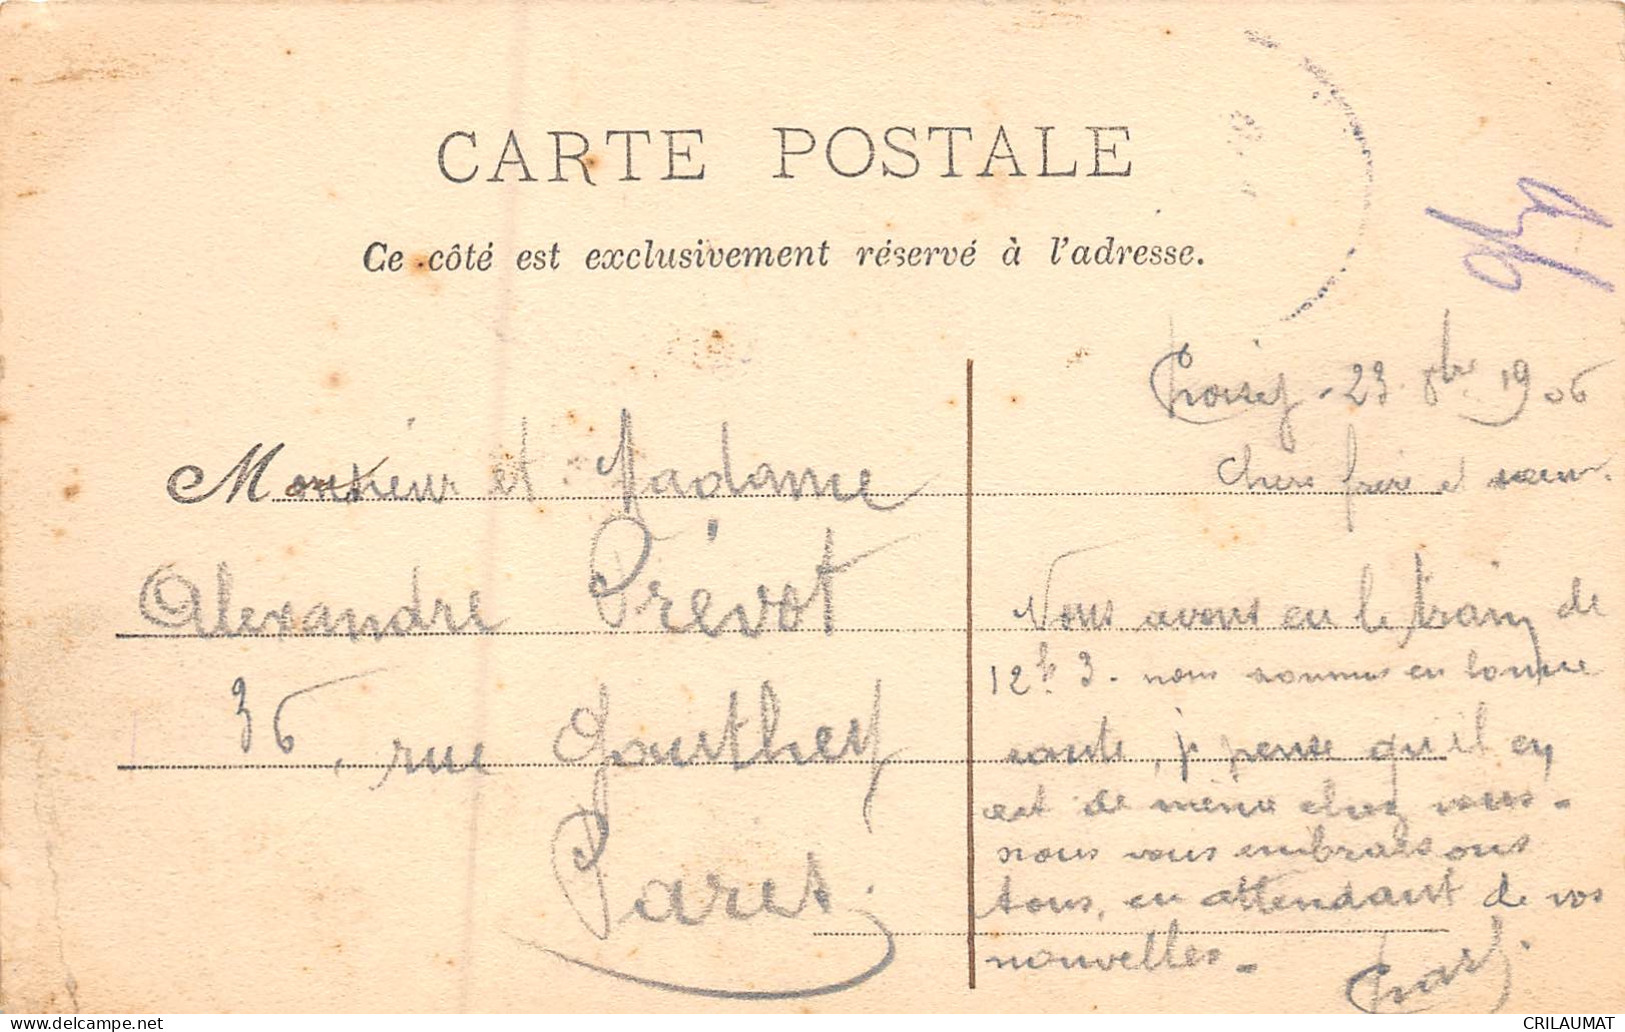 CARTE POSTALE
Ce côté est exclusivement réservé à l'adresse.
Monsieur et Madame
Alexandre Prévot
36, rue Gouthey
Paris
Choisy - 23 8bre 1906
Chers frère et sœur.
Nous avons eu le train de
12h 3. nous sommes en bonne
santé, je pense qu'il en
est de même chez vous.
nous vous embrassons
tous, en attendant de vos
nouvelles.
CRILAUMAT